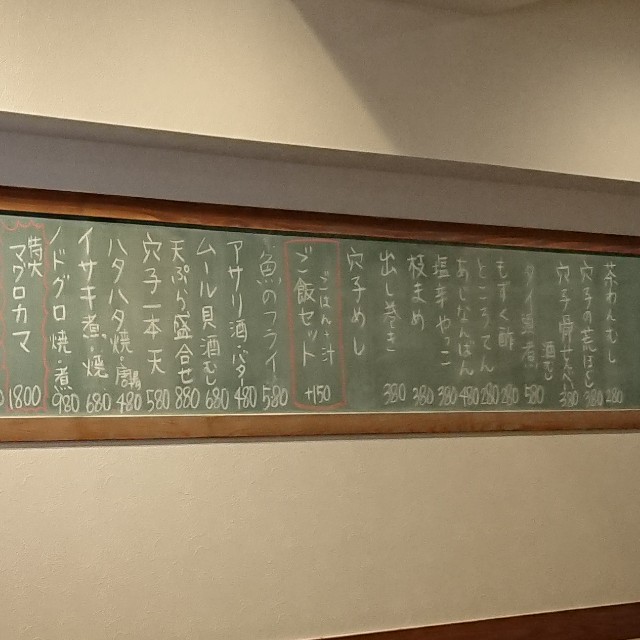 茶わんむし 280
穴子の煮こごり 380
穴子骨せんべい 380
タイ 酒むし 580
もずく酢 280
ところてん 280
480
塩辛やっこ 380
枝まめ 380
出し巻き 380
穴子めし
ごはん・汁
ご飯セット +150
魚のフライ 580
アサリ酒・バター 480
ムール貝酒むし 680
天ぷら盛合せ 880
穴子一本天 580
ハタハタ焼・唐揚 480
イサキ煮・焼 680
ノドグロ焼・煮 980
特大
マグロカマ 1800